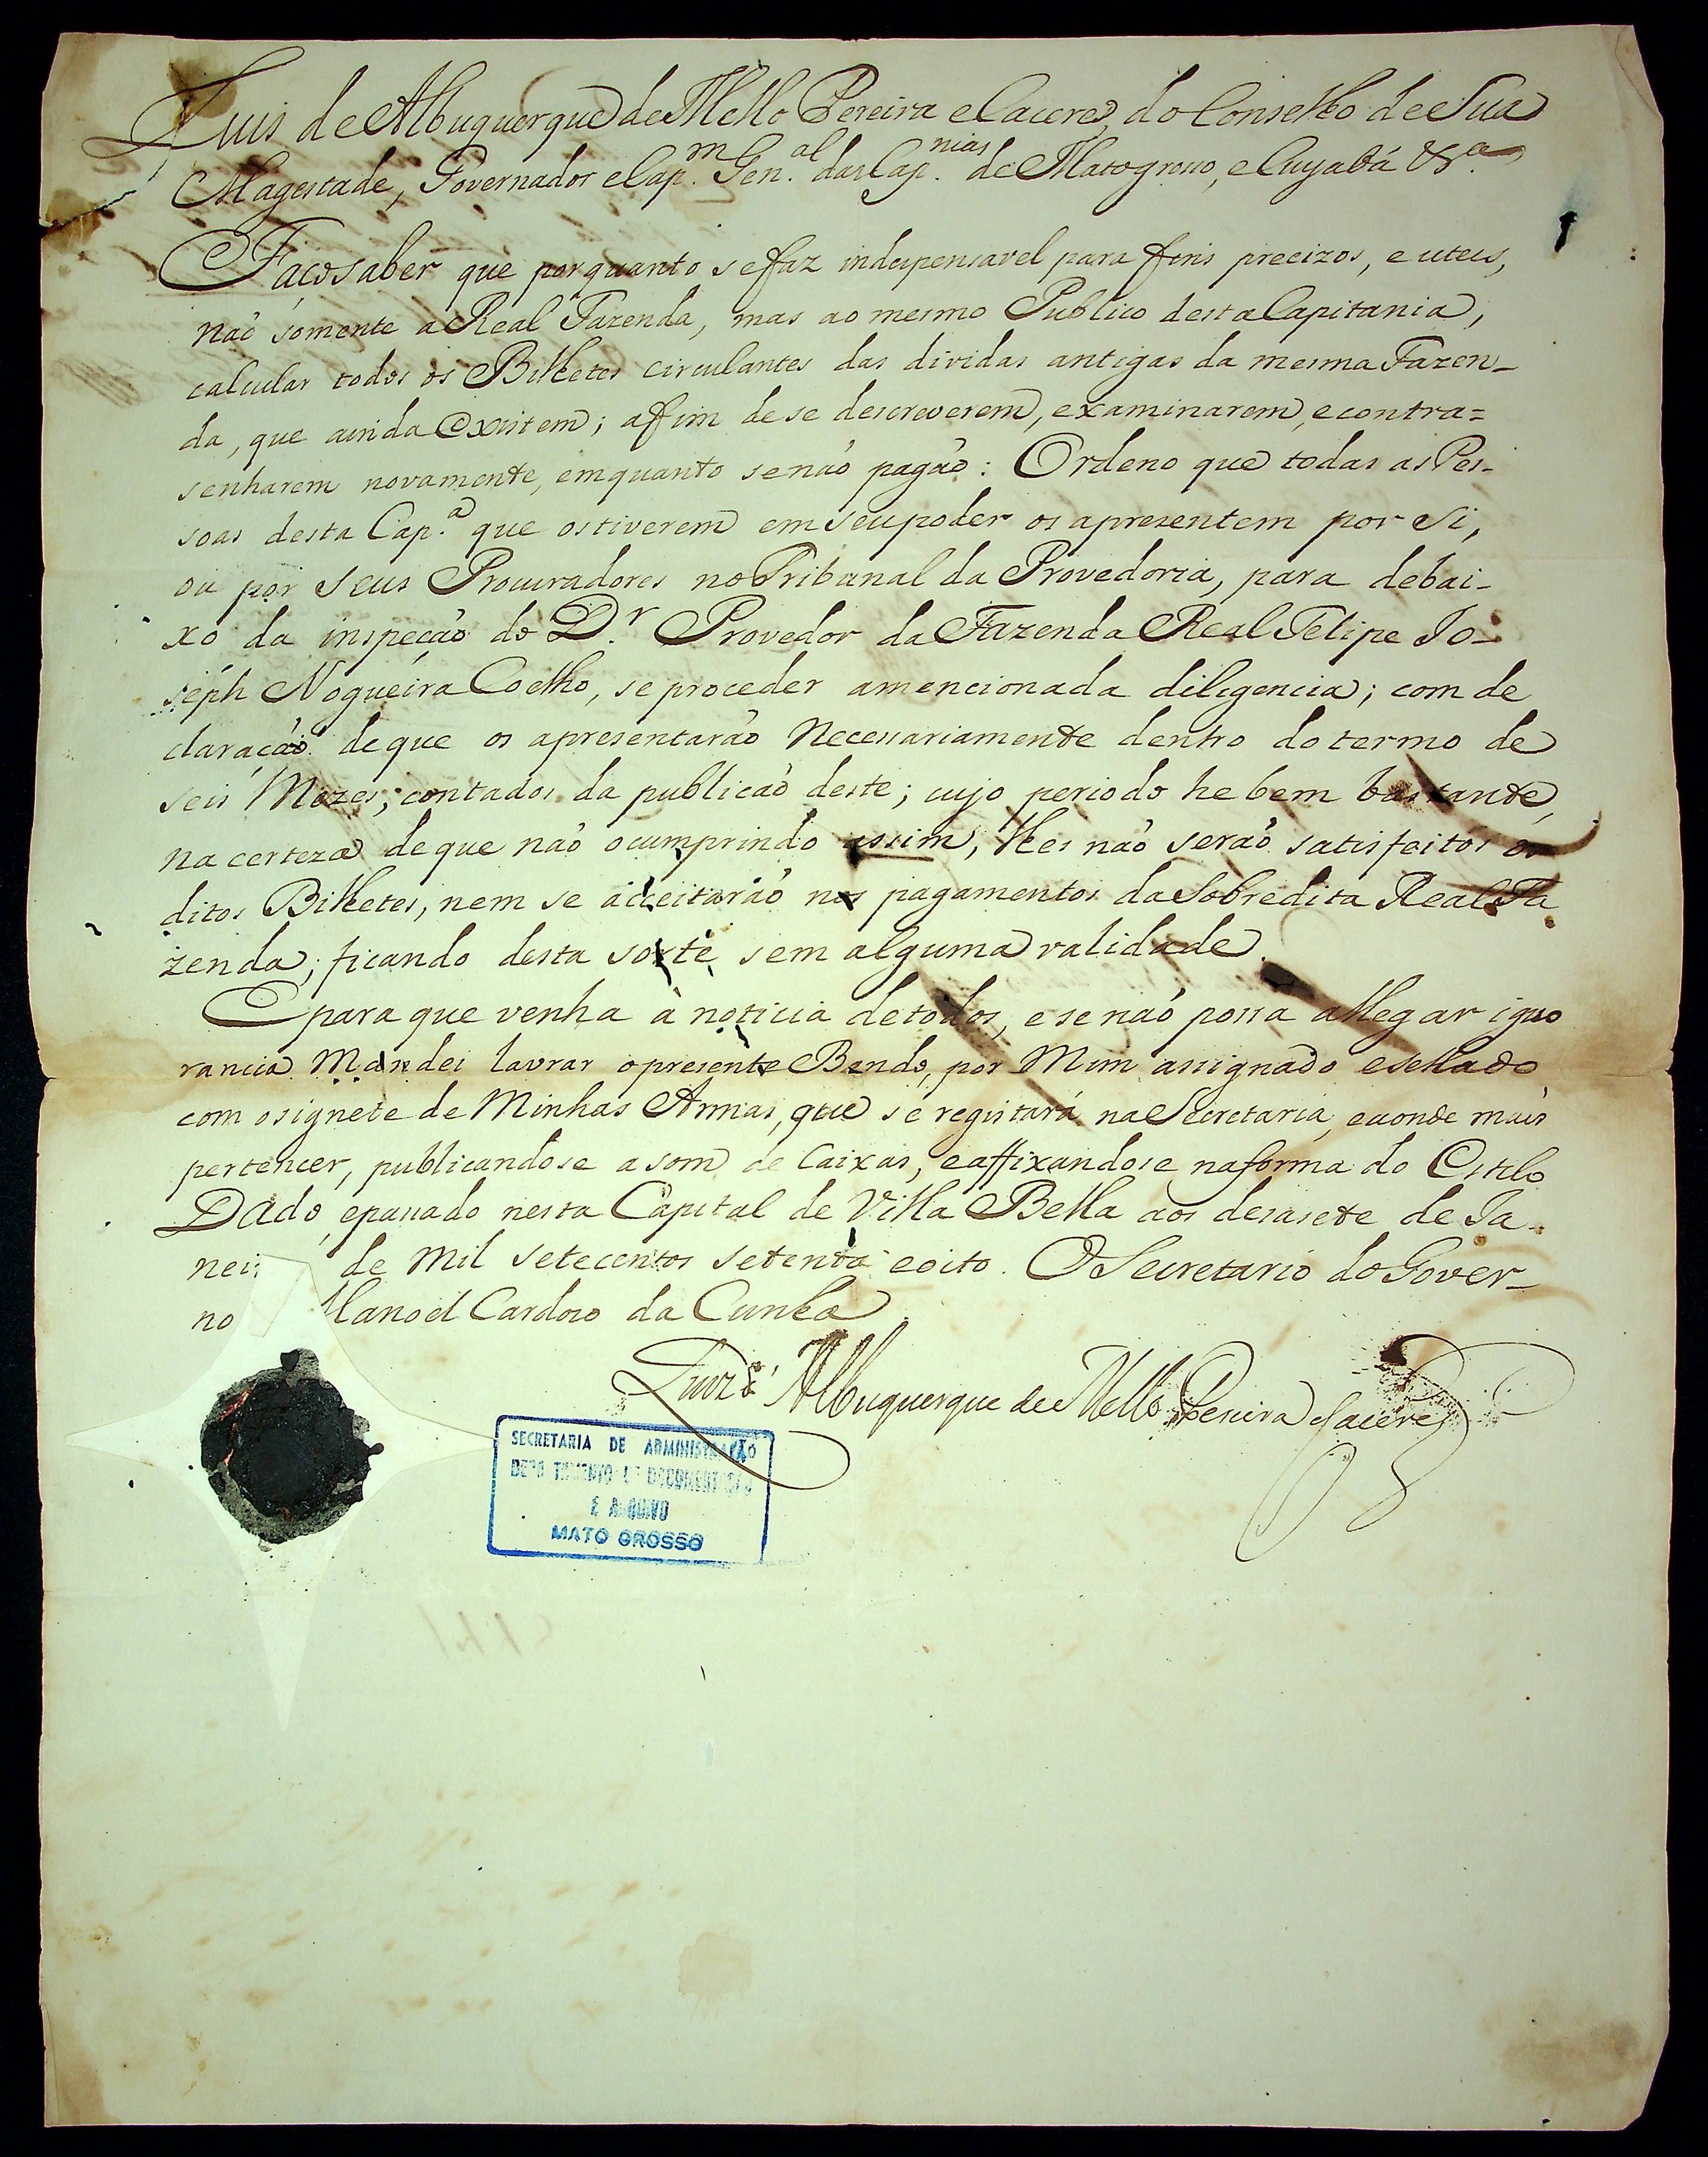 Luis de Albuquerque de Mello Pereira e Caceres, do Conselho de Sua
Magestade, Governador e Cap.m Gen.al das Cap.nias de Matogrosso, e Cuyabá &.ª
Faço saber que porquanto se faz indespensavel para fins precizos, e uteis,
naõ somente á Real Fazenda, mas ao mesmo Publico desta Capitania,
calcular todos os Bilhetes circulantes das dividas antigas da mesma Fazen-
da, que ainda existem; affim de se descreverem, examinarem, e contra=
senharem novamente, emquanto se naõ pagaõ: Ordeno que todas as Pes-
soas desta Cap.ª que os tiverem em seu poder os apresentem por Si,
ou por seus Procuradores no Tribunal da Provedoria, para debai-
xo da inspeçaõ do D.r Provedor da Fazenda Real Felipe Jo-
seph Nogueira Coelho, se proceder a mencionada diligencia; com de
claraçaõ de que os apresentaraõ Necessariamente dentro do termo de
seis Mezes; contados da publicaõ deste; cujo periodo he bem bastante,
na certeza de que naõ o cumprindo assim, lhes naõ seraõ satisfeitos os
ditos Bilhetes, nem se aceitaraõ nos pagamentos da Sobredita Real Fa
zenda; ficando desta sorte sem alguma validade.
E para que venha à noticia de todos, e se naõ possa allegar igno
rancia Mandei lavrar o presente Bando, por Mim assignado e sellado
com o signete de Minhas Armas, que se registará na Secretaria, e aonde mais
pertencer, publicandose a som de Caixas, e affixandose na forma do Estilo
Dado, e passado nesta Capital de Villa Bella aos desasete de Ja-
nei de Mil setecentos setenta e oito. O Secretario do Gover-
no Manoel Cardoso da Cunha
Luiz d' Albuquerque de Mello Pereira e Caceres
SECRETARIA DE ADMINISTRAÇÃO
DEPARTAMENTO DE DOCUMENTAÇÃO
E ARQUIVO
MATO GROSSO